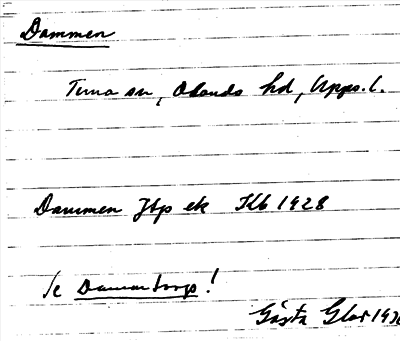 Dammen
Tierna sn, Olands hd, Upps. l.
Dammen Jtp ek Kb 1928
Se Dammtorp!
Gösta